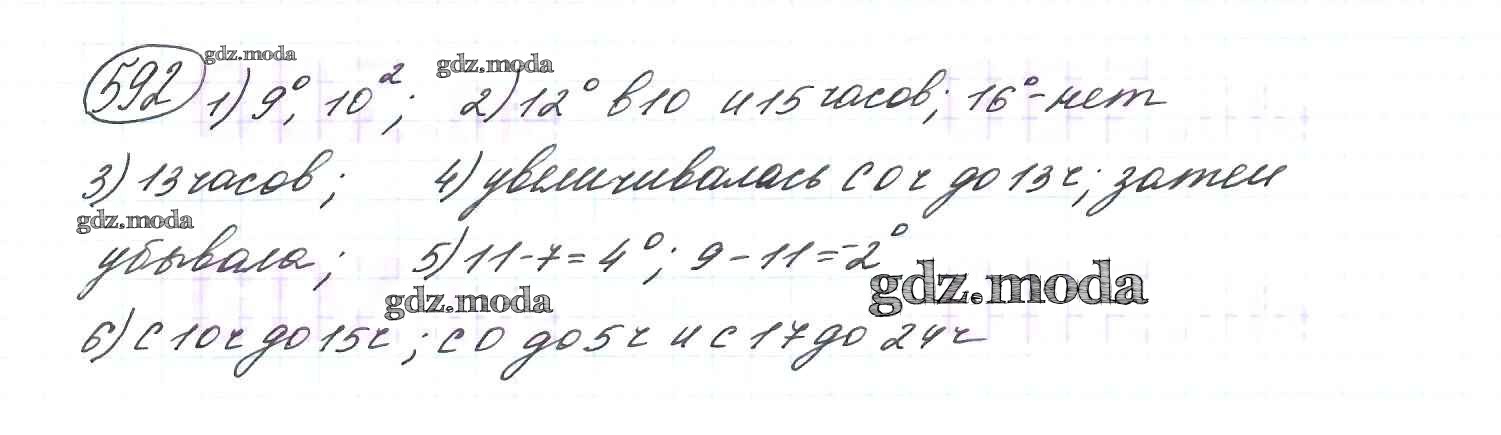 592 gdz.moda 1) 9°, 10²; gdz.moda 2) 12° в 10 и 15 часов; 16° - нет
3) 13 часов; 4) увеличивалась с 0 ч до 13 ч; затем
gdz.moda
убывала; 5) 11 - 7 = 4°; 9 - 11 = -2°
gdz.moda gdz.moda
6) с 10 ч до 15 ч; с 0 до 5 ч и с 17 до 24 ч